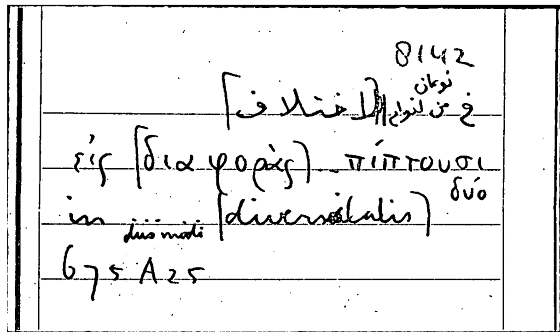 8142
نوعان
في من انواع [الاختلاف]
εἰς [διαφορὰς] .. πίπτουσι
δύο
in [diversitatis]
675 A 25